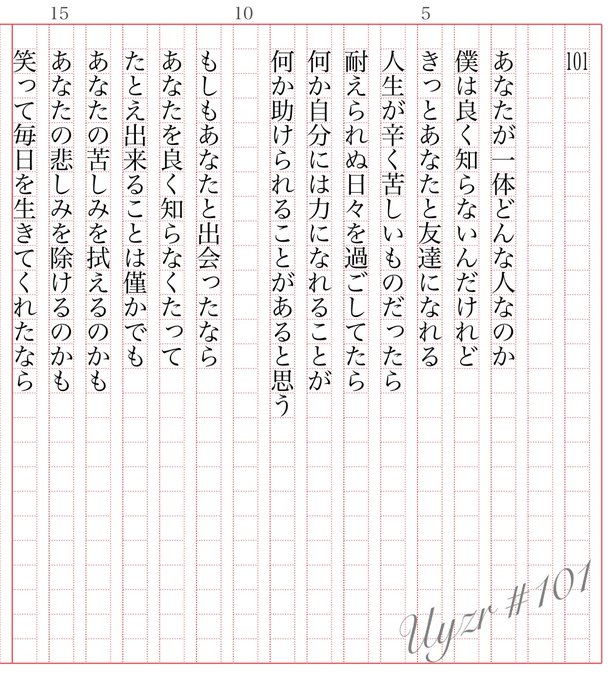 15 10 5
101
あなたが一体どんな人なのか
僕は良く知らないんだけれど
きっとあなたと友達になれる
人生が辛く苦しいものだったら
耐えられぬ日々を過ごしてたら
何か自分には力になれることが
何か助けられることがあると思う
もしもあなたと出会ったなら
あなたを良く知らなくたって
たとえ出来ることは僅かでも
あなたの苦しみを拭えるのかも
あなたの悲しみを除けるのかも
笑って毎日を生きてくれたなら
Uyzr #101